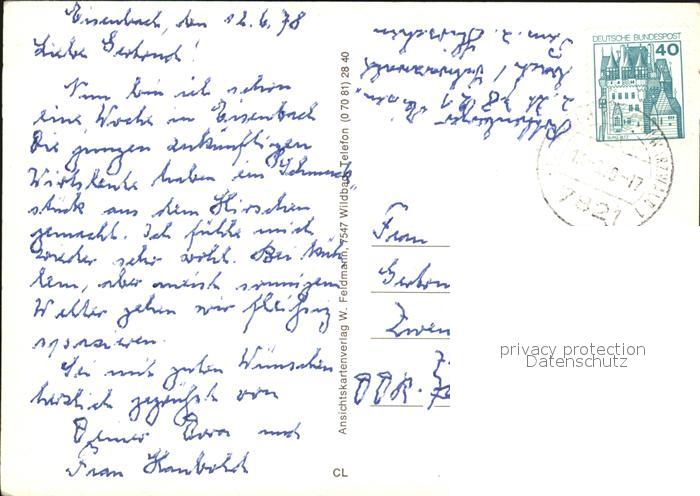 Eisenbach, den 12.6.78
Liebe Gertrud!
Nun bin ich schon
eine Woche in Eisenbach
Die jungen zukünftigen
Wirtsleute haben ein "Schmuck"
stück aus dem Hirschen
gemacht. Ich fühle mich
wieder sehr wohl. Bei küh
lem, aber meist sonnigem
Wetter gehen wir fleißig
spazieren.
Sei mit guten Wünschen
herzlich gegrüßt von
Deiner Dora und
Frau Haubold
Ansichtskartenverlag W. Feldmann, 7547 Wildbad, Telefon (0 70 81) 28 40
CL
DEUTSCHE BUNDESPOST
40
7821
Frau
Gertru
Zwen
7.
DDR-
privacy protection
Datenschutz